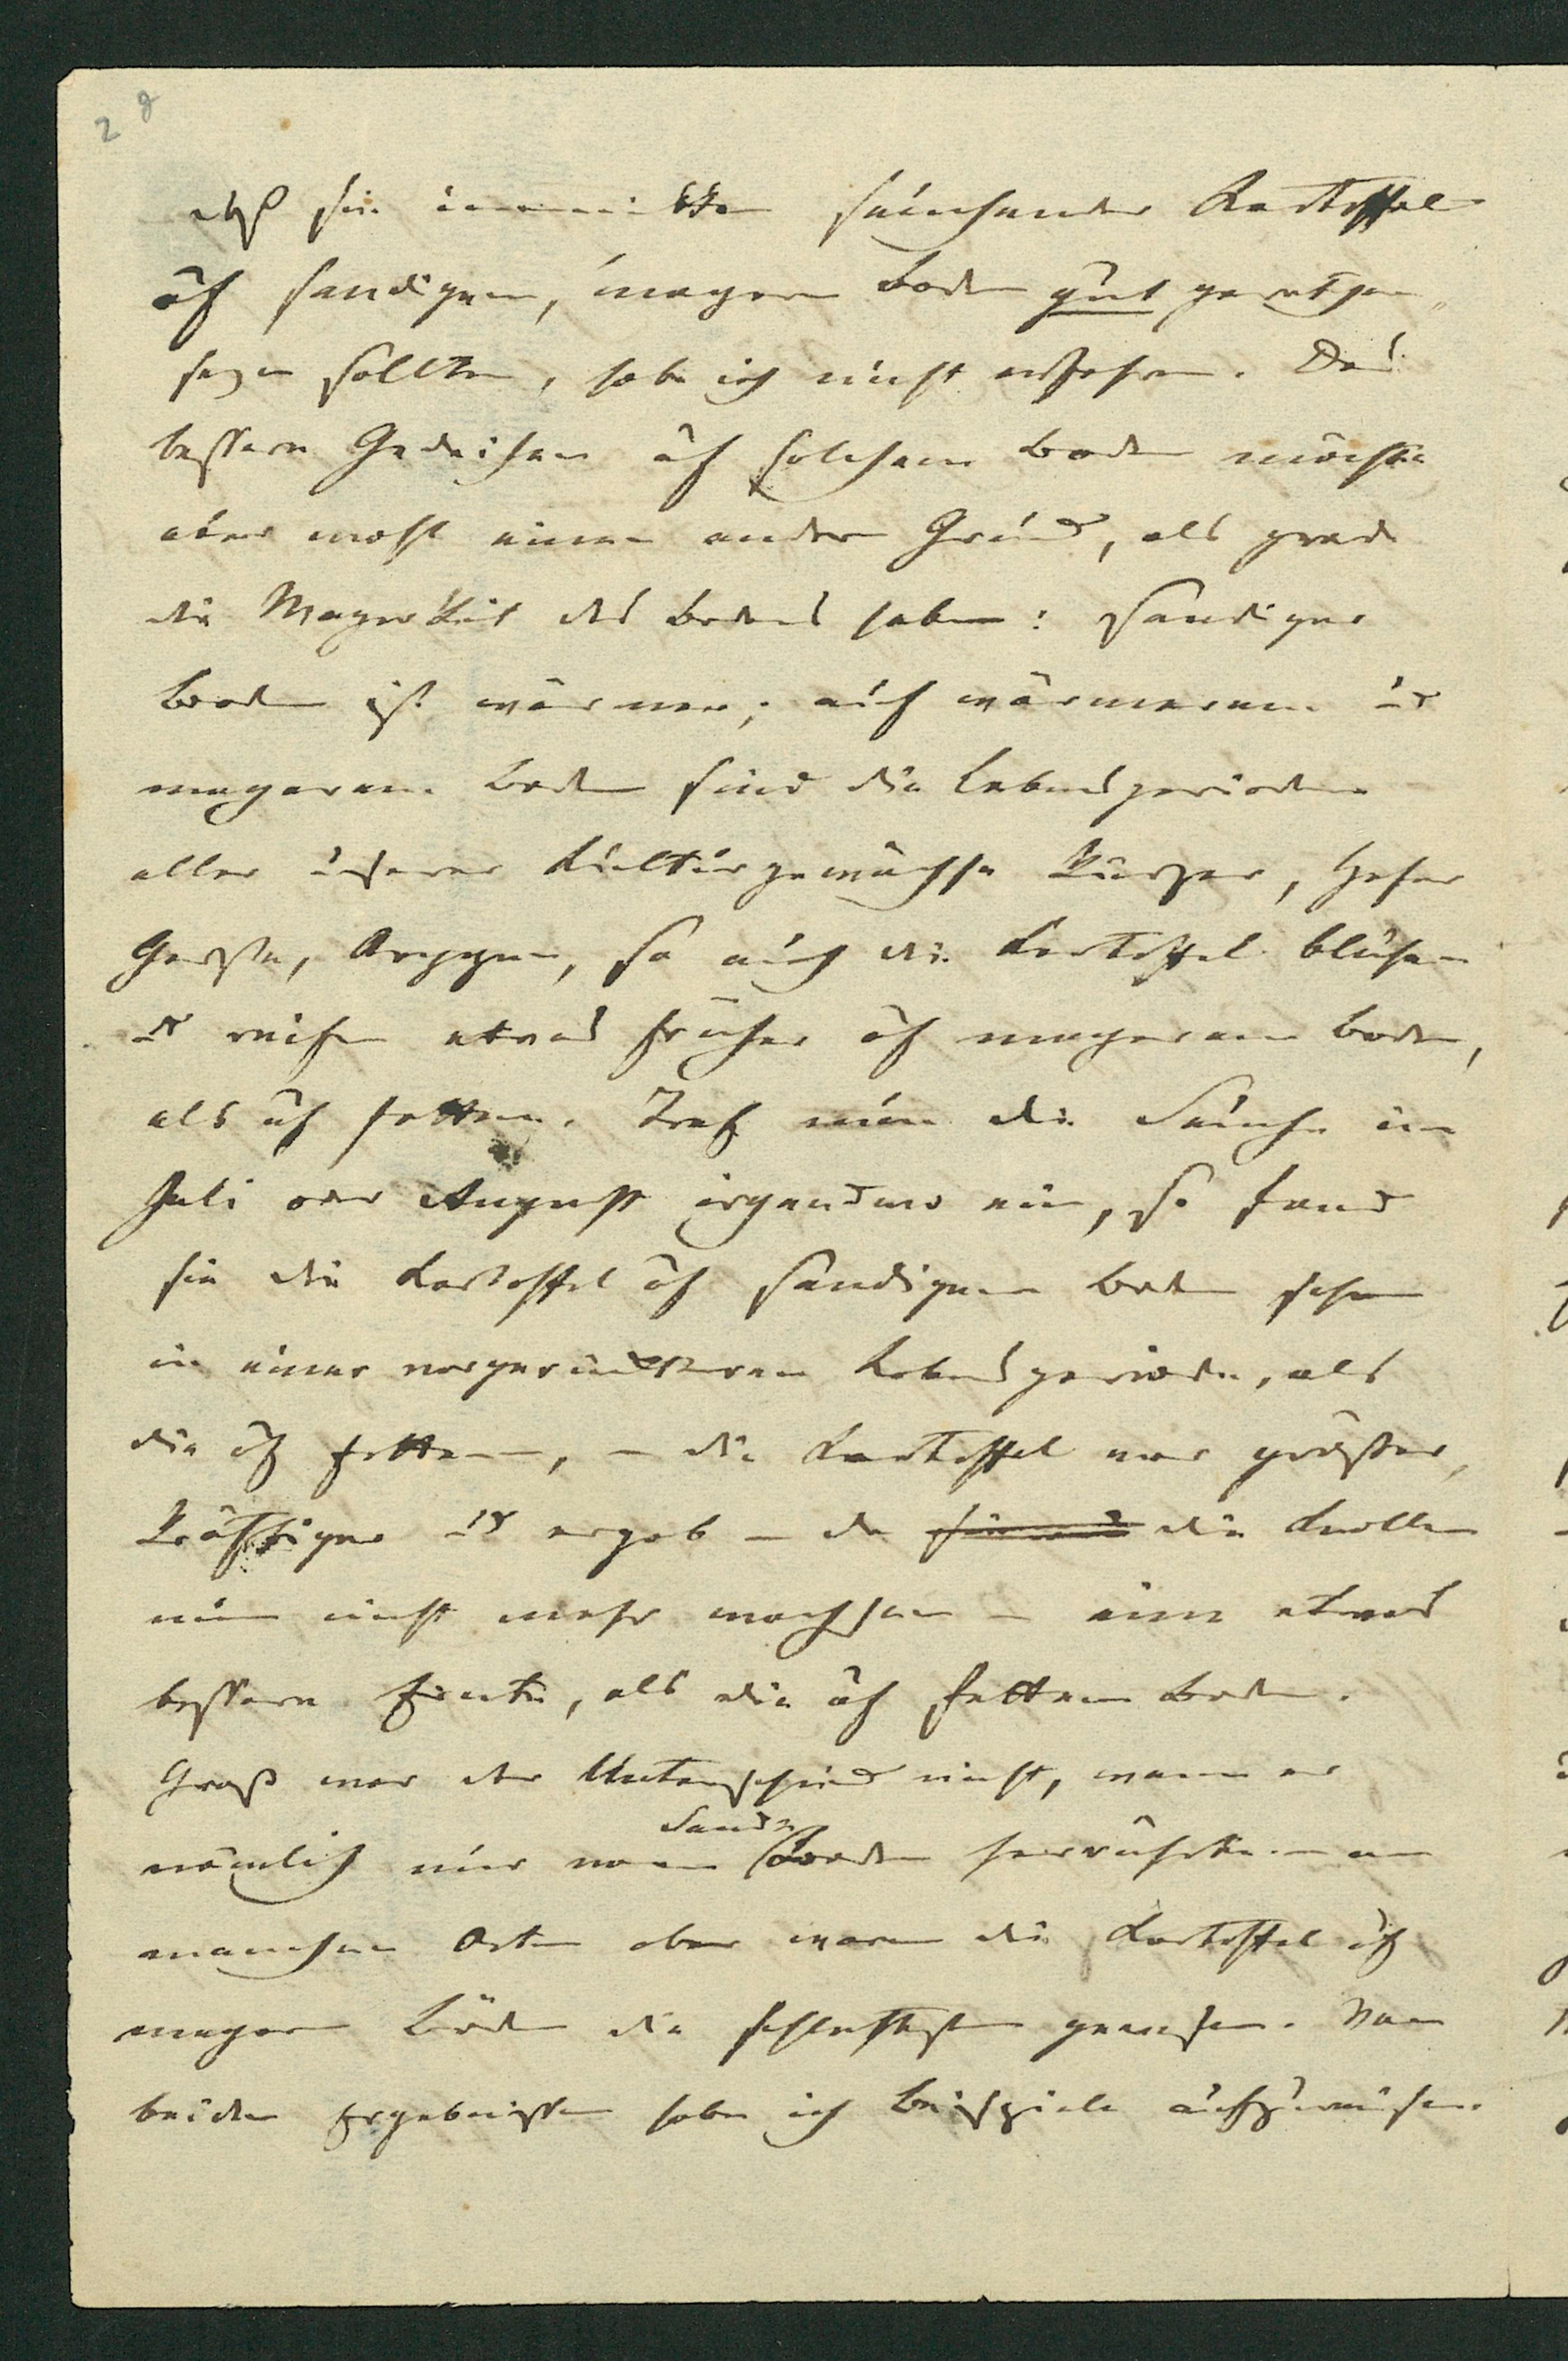 28
daß sie inmitten seuchender Kartoffel
auf sandigem, magern Boden gut gerathen
seyn sollten, habe ich nicht erfahren. Das
bessere Gedeihen auf solchem Boden möchte
aber wohl einen andern Grund, als grade
die Magerkeit des Bodens haben: sandiger
Boden ist wärmer; auf wärmerem u
magerem Boden sind die Lebensperioden
aller unserer Kulturgewächse kürzer, Hafer
Gerste, Roggen, so auch die Kartoffel blühen
u reifen etwas früher auf magerem Boden,
als auf fettem. Traf nun die Seuche im
Juli oder August irgendwo ein, so fand
sie die Kartoffel auf sandigem Boden schon
in einer vorgerückteren Lebensperiode, als
die auf fettem, – die Kartoffel war größer,
kräftiger u ergab – da die Knollen
nun nicht mehr wachsen – eine etwas
bessere Ernte, als die auf fettem Boden.
Groß war der Unterschied nicht, wenn er
Sand-
nämlich nur vom Boden herrührte. – an
manchen Orten aber waren die Kartoffel auf
magern Böden die schlechtesten gewesen. Von
beiden Ergebnissen habe ich Beispiele aufzuweisen.